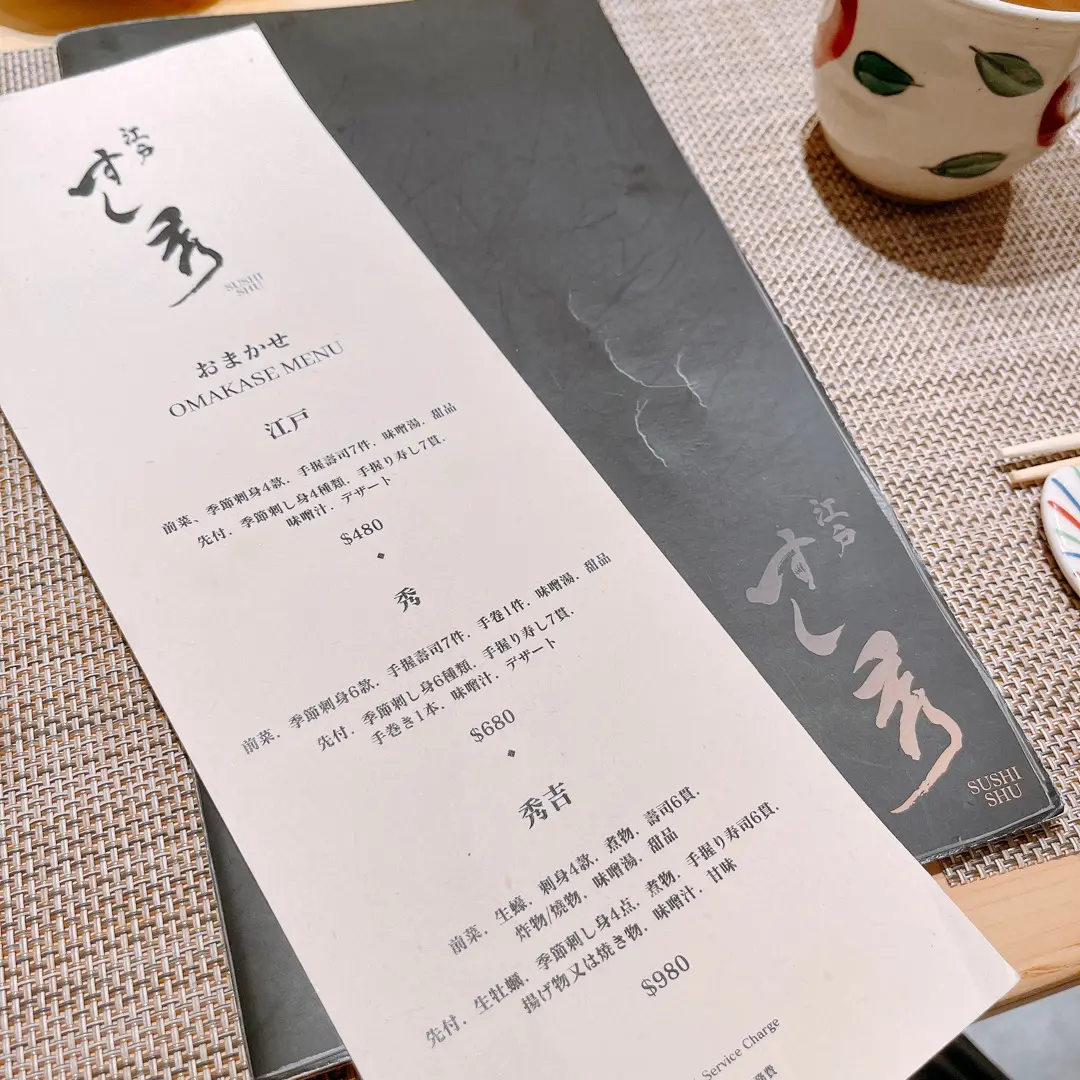 江戸
すし
秀
SUSHI
SHU
おまかせ
OMAKASE MENU
江戸
前菜、季節刺身4款．手握壽司7件．味噌湯．甜品
先付．季節刺し身4種類．手握り寿し7貫．
味噌汁．デザート
$480
秀
前菜．季節刺身6款．手握壽司7件．手卷1件．味噌湯．甜品
先付．季節刺し身6種類．手握り寿し7貫．
手巻き1本．味噌汁．デザート
$680
秀吉
前菜．生蠔．刺身4款．煮物．壽司6貫．
炸物/燒物．味噌湯．甜品
先付．生牡蠣．季節刺し身4点．煮物．手握り寿司6貫．
揚げ物又は焼き物．味噌汁．甘味
$980
Service Charge
江戸
すし
秀
SUSHI
SHU